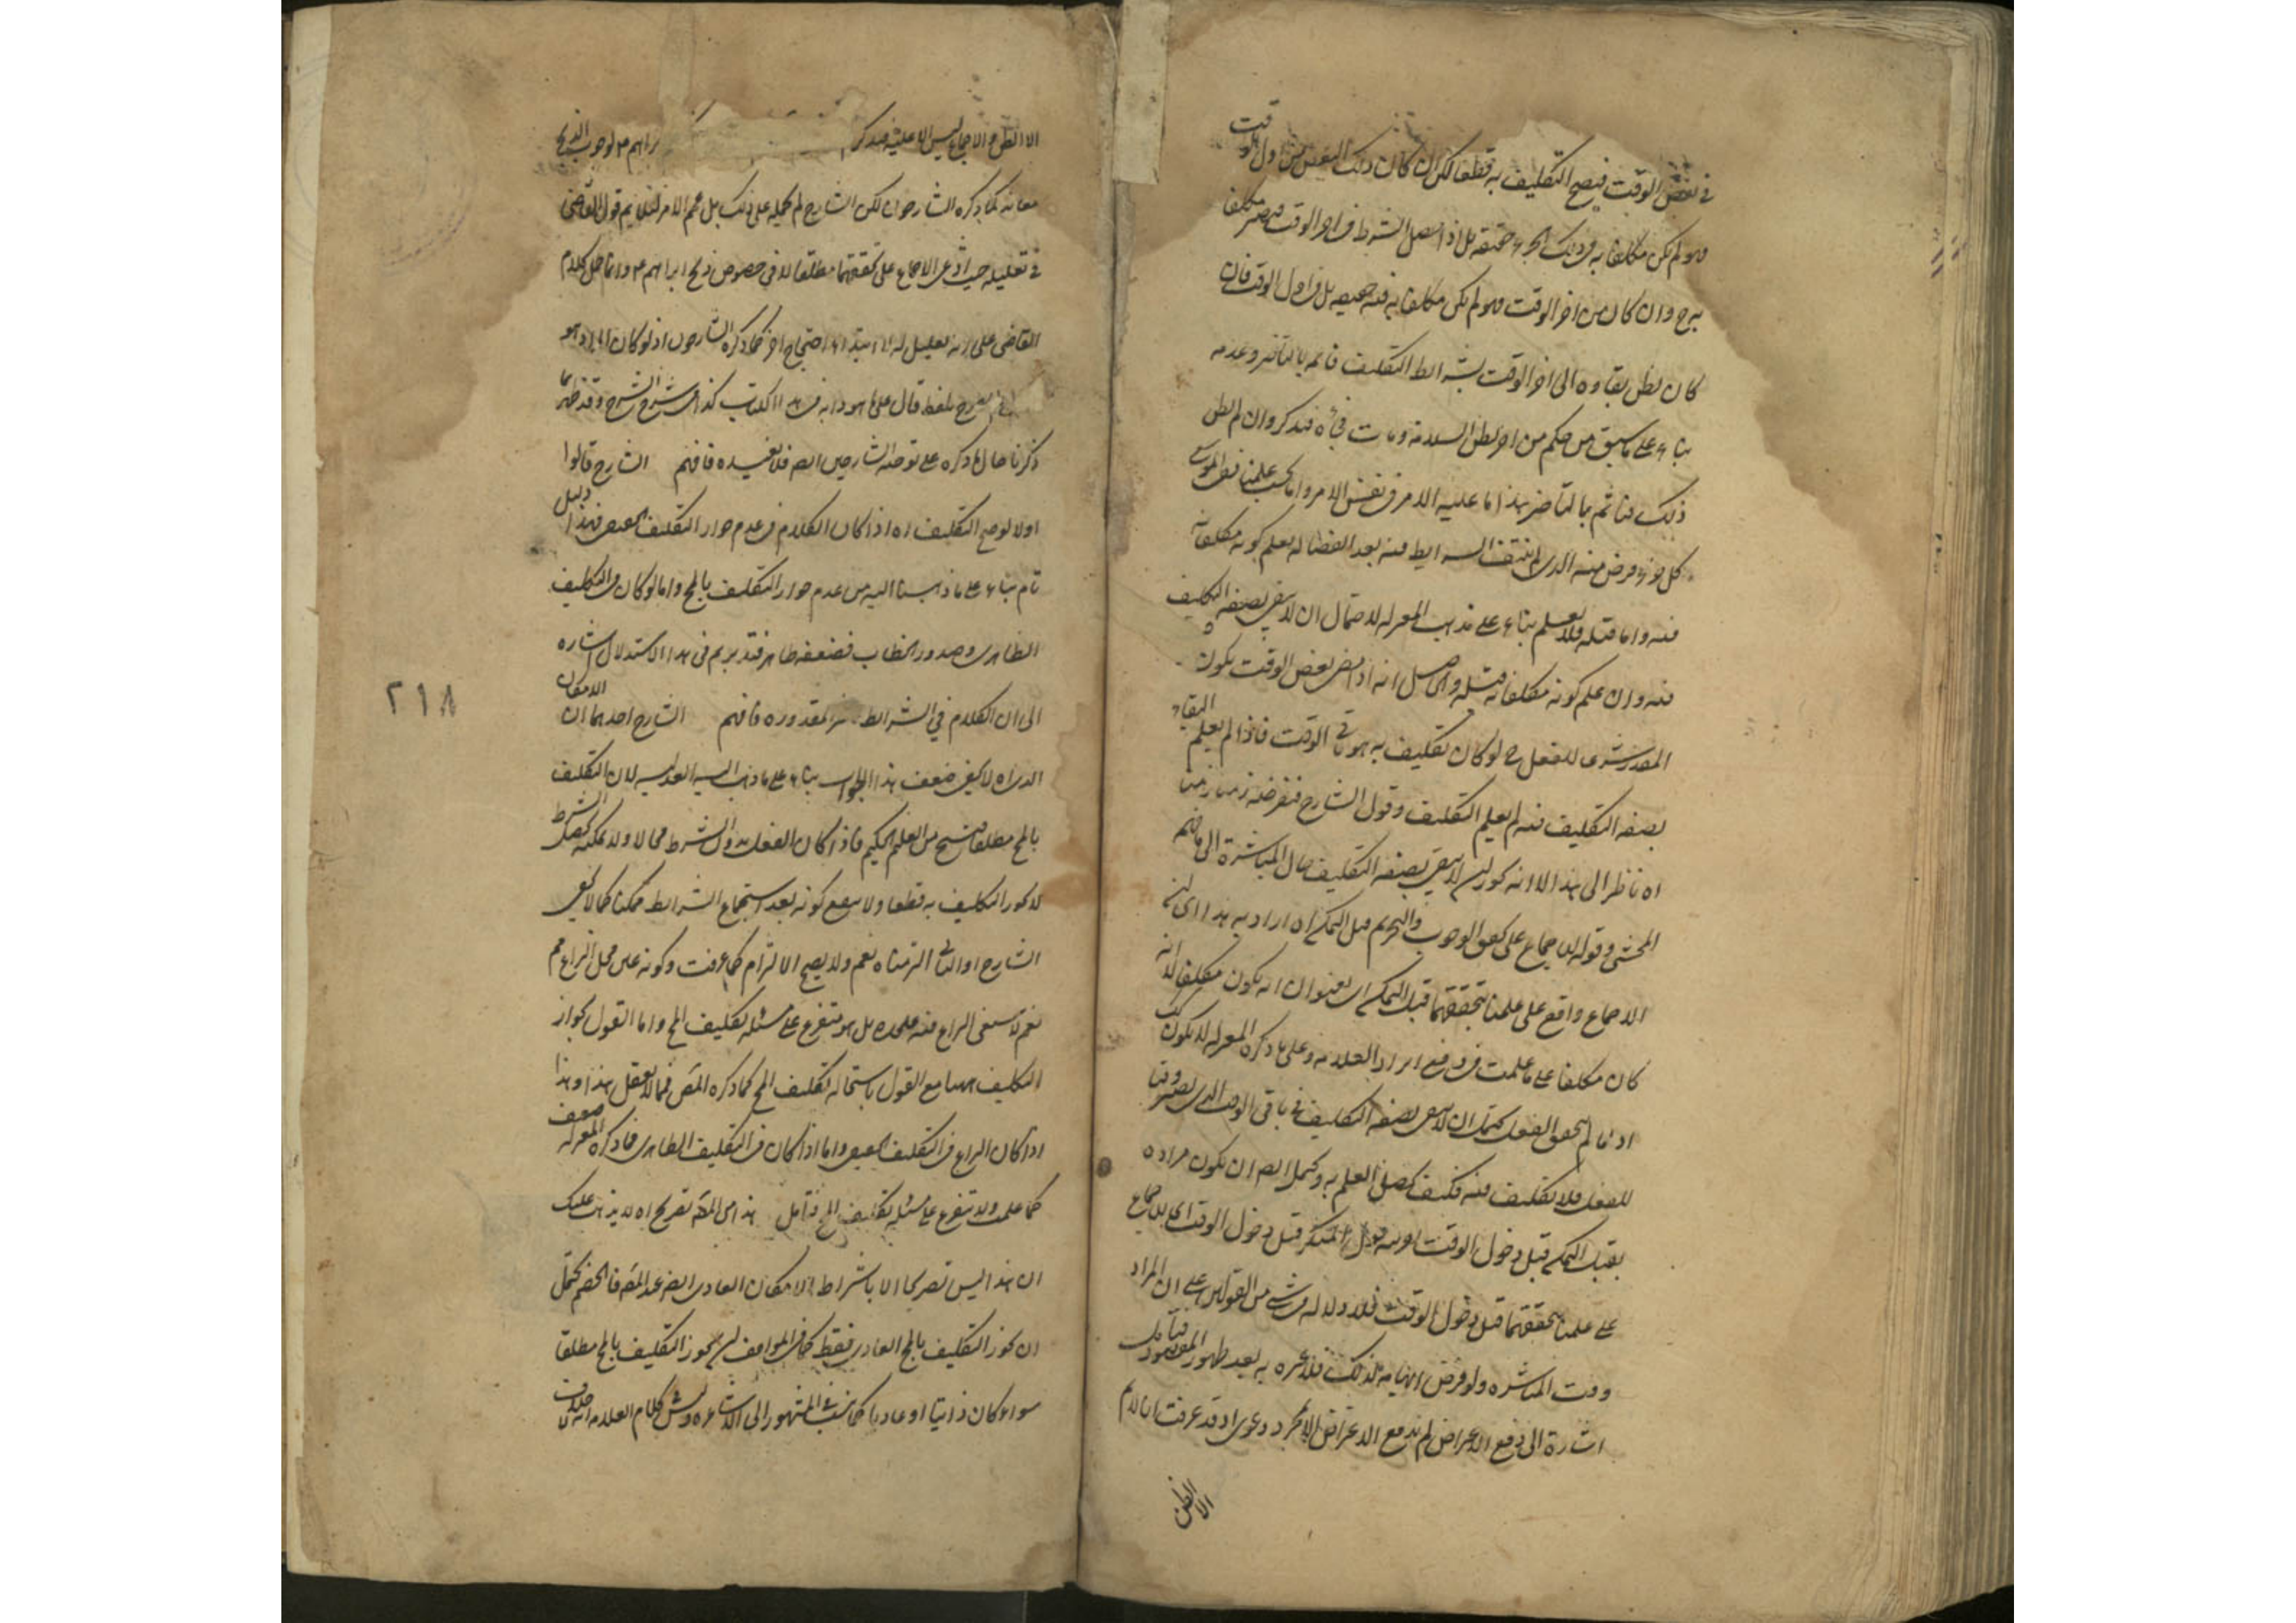 في بعض الوقت فيصح التكليف به قطعا لكن ان كان ذلك البعض من اول الوقت
فهو لم يكن مكلفا به في ذلك الجزء حقيقة بل اذا حصل الشرط في اخر الوقت فيصير مكلفا
به ح وان كان من اخر الوقت فهو لم يكن مكلفا به فيه حقيقة بل في اول الوقت فان
كان يظن بقاوه الى اخر الوقت بشرايط التكليف فاثم بالتاخير وعدمه
بناء على ما سبق من حكم من اخر بظن السلامة ومات فجأة فتذكر وان لم يظن
ذلك فتاثم بالتاخير هذا ما عليه الامر في نفس الامر واما بحسب علمنا ففي الموسع
كل جزء فرض منه الذي لم ينتف الشرايط فيه بعد انقضائه يعلم كونه مكلفا به
فيه واما قبله فلا يعلم بناء على مذهب المعتزلة لاحتمال ان لا يبقى بصفة التكليف
فيه وان علم كونه مكلفا به قبله والحاصل انه اذا مضى بعض الوقت يكون
المقدر شرعى للفعل ح لو كان تكليف به هو في باقي الوقت فاذا لم يعلم البقاء
بصفة التكليف فيه لم يعلم التكليف وقول الشارح فنفرضه زمنا زمنا
اه ناظر الى هذا الا انه يجوز ان لا يبقى بصفة التكليف حال المباشرة الى ما فهم
المحشى وقوله الاجماع على تحقق الوجوب والتحريم قبل التمكن اه اراد به هذا اى ان
الاجماع واقع على علمنا بتحققهما قبل التمكن اى بعنوان انه يكون مكلفا لا انه
كان مكلفا على ما علمت في دفع ايراد العلامة وعلى ما ذكره المعتزلة لا يكون كذلك
اذ ما لم يتحقق الفعل يحتمل ان لا يبقى بصفة التكليف في باقي الوقت الذي يصير وقتا
للفعل فلا تكليف فيه فكيف يحصل العلم به ويحتمل ايضا ان يكون مراده
بقبل التمكن قبل دخول الوقت قبل دخول الوقت اى الاجماع
على علمنا بتحققهما قبل دخول الوقت فلا دلالة في شئ من القولين على ان المراد
وقت المباشرة ولو فرض ايهامه لذلك فلا عبرة به بعد ظهور المقصود فتامل
اشارة الى دفع الاعتراض لم يندفع الاعتراض الا بمجرد دعوى اذ قد عرفت ان اللازم
الا الظن
الا الظن والاجماع ليس الا عليه فتذكر ابراهيم ع لوجوب الذبح
معانه كما ذكره الشارحون لكن الشارح لم يحمله على ذلك بل عمم الامر لئلا يتم قول القاضى
في تعليله حيث ادعى الاجماع على تحققهما مطلقا لا في خصوص ذبح ابراهيم ع وانما حمل كلام
القاضى على انه تعليل له لا ابتداء احتجاج اخر كما ذكره الشارحون اذ لو كان المراد هو
بلفظ قال على ما هو دابه في هذا الكتاب كذا في شرح الشرح وقد ظهر بما
ذكرنا حال ما ذكره على توجيه الشارحين ايضا فلا نعيده فافهم الشارح قالوا
اولا لو صح التكليف اه اذا كان الكلام في عدم جواز التكليف الحقيقى فهذا دليل
تام بناء على ما ذهبنا اليه من عدم جواز التكليف بالمح واما لو كان في التكليف
الظاهرى وصدور الخطاب فضعفه ظاهر فتدبر ثم في هذا الاستدلال اشارة
الى ان الكلام في الشرايط الغير المقدورة فافهم الشارح احدهما ان الامكان
الذى اه لا يخفى ضعف هذا الجواب بناء على ما ذهب اليه العدلية لان التكليف
بالمح مطلقا قبيح من العليم الحكيم فاذا كان الفعل بدون الشرط محالا ولا يمكنه تحصيل الشرط
لا يجوز التكليف به قطعا ولا ينفع كونه بعد استجماع الشرايط ممكنا كما لا يخفى
الشارح او الثانى التزمناه نعم ولا يصح الالتزام كما عرفت وكونه عين محل النزاع مم
نعم لا يبقى النزاع فيه على حده بل هو متفرع على مسئلة تكليف المح واما القول بجواز
التكليف ههنا مع القول باستحالة تكليف المح كما ذكره المص فمما لا يعقل هذا وهذا
اذا كان النزاع في التكليف الحقيقى واما اذا كان في التكليف الظاهرى فما ذكره المعتزلة ضعيف
كما علمت ولا يتفرع على مسئلة تكليف المح فتامل هذا من المص تصريح اه لا يذهب عليك
ان هذا ليس تصريحا الا باشتراط الامكان العادى ايضا عند المص فالخصم يحتمل
ان يجوز التكليف بالمح العادى فقط كما في المواقف لمن يجوز التكليف بالمح مطلقا
سواء كان ذاتيا او عاديا كما نسب في المشهور الى الاشاعرة وليس كلام العلامة انه خلاف
٢١٨